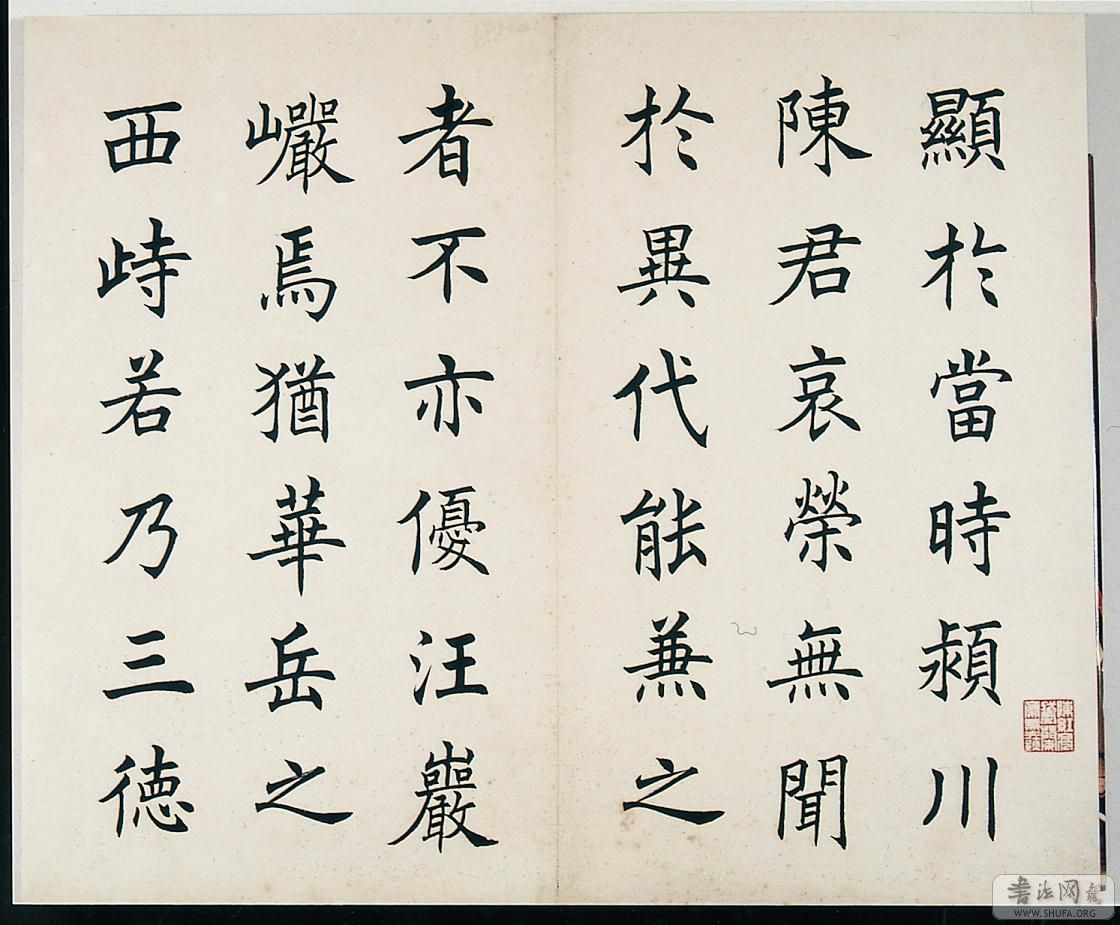 顯於當時潁川
陳君哀榮無聞
於異代能兼之
者不亦優汪巖
巗焉猶華岳之
西峙若乃三德
書法网
WWW.SHUFA.ORG